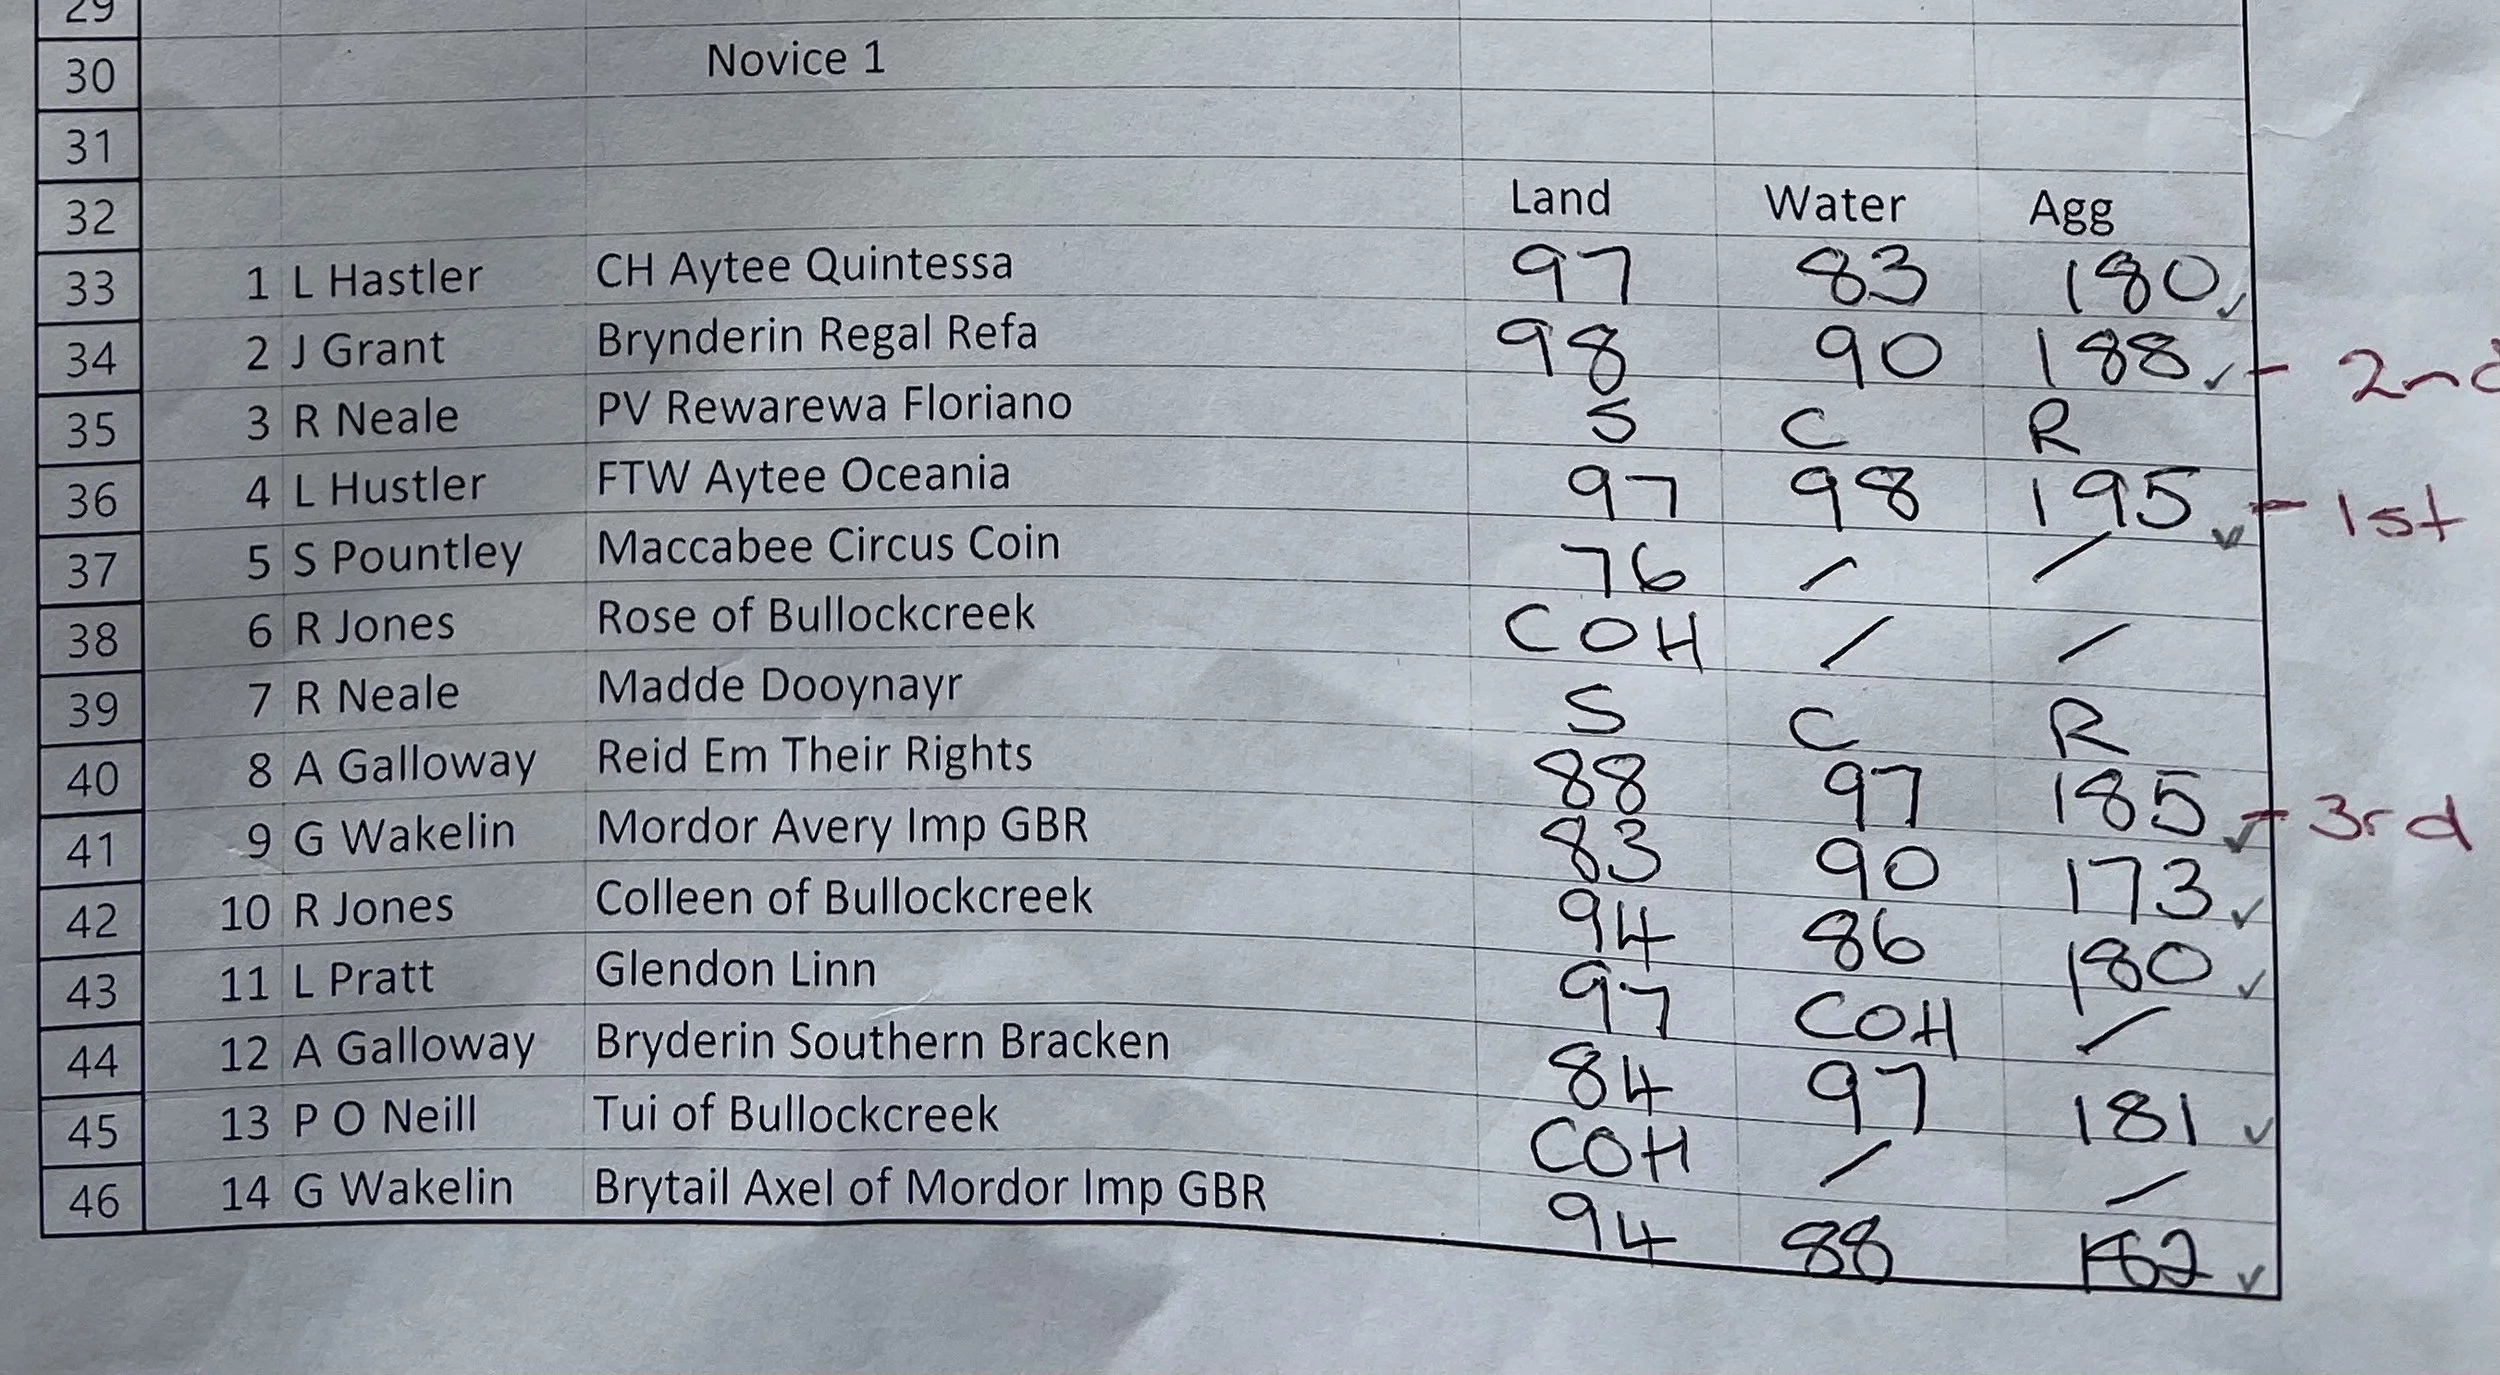 29
30 Novice 1
31
32 Land Water Agg
33 1 L Hastler CH Aytee Quintessa 97 83 180 ✓
34 2 J Grant Brynderin Regal Refa 98 90 188 ✓ - 2nd
35 3 R Neale PV Rewarewa Floriano S C R
36 4 L Hustler FTW Aytee Oceania 97 98 195 ✓ - 1st
37 5 S Pountley Maccabee Circus Coin 76 / /
38 6 R Jones Rose of Bullockcreek COH / /
39 7 R Neale Madde Dooynayr S C R
40 8 A Galloway Reid Em Their Rights 88 97 185 ✓ - 3rd
41 9 G Wakelin Mordor Avery Imp GBR 83 90 173 ✓
42 10 R Jones Colleen of Bullockcreek 94 86 180 ✓
43 11 L Pratt Glendon Linn 97 COH /
44 12 A Galloway Bryderin Southern Bracken 84 97 181 ✓
45 13 P O Neill Tui of Bullockcreek COH / /
46 14 G Wakelin Brytail Axel of Mordor Imp GBR 94 88 182 ✓